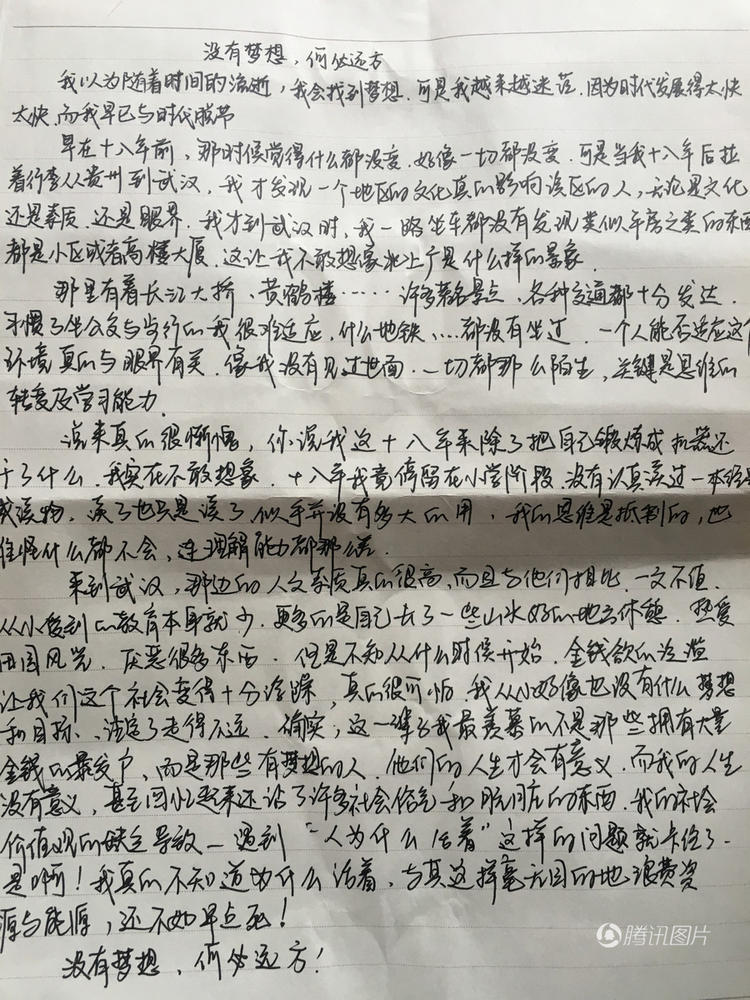 没有梦想，何必远方
我以为随着时间的流逝，我会找到梦想，可是我越来越迷茫，因为时代发展得太快
太快，而我早已与时代脱节
早在十八年前，那时候觉得什么都没变，好像一切都没变，可是当我十八年后拉
着行李从贵州到武汉，我才发现一个地区的文化真的影响该区的人，无论是文化
还是素质，还是眼界，我才到武汉时，我一路坐车都没有发现类似平房之类的东西
都是小区或者高楼大厦，这让我不敢想像北上广是什么样的景象
那里有着长江大桥、黄鹤楼……许多著名景点，各种交通都十分发达，
习惯了坐公交与步行的我很难适应，什么地铁、…都没有坐过，一个人能否适应这个
环境真的与眼界有关，像我没有见过世面，一切都那么陌生，关键是思维的
转变及学习能力
说来真的很惭愧，你说我这十八年来除了把自己锻炼成机器还
干了什么，我实在不敢想象，十八年我竟停留在小学阶段，没有认真读过一本经典
或读物，读了也只是读了，似乎并没有多大的用，我的思维是抵制的，也
难怪什么都不会，连理解能力都那么差．
来到武汉，那边的人文素质真的很高，而且与他们相比，一文不值，
从小受到的教育本身就少，更多的是自己去了一些山水好的地方休憩，热爱
田园风光，厌恶很多东西．但是不知从什么时候开始，金钱欲的泛滥
让我们这个社会变得十分浮躁，真的很可怕，我从小好像也没有什么梦想
和目标、注定了走得不远，确实，这一辈子我最羡慕的不是那些拥有大量
金钱的暴发户、而是那些有梦想的人，他们的人生才会有意义，而我的人生
没有意义，甚至回忆起来还沾了许多社会俗气和肮脏的东西，我的社会
价值观的缺乏导致一遇到“人为什么活着”这样的问题就卡住了．
是啊！我真的不知道为什么活着，与其这样毫无目的地浪费资
源与能源，还不如早点死！
没有梦想，何必远方！
腾讯图片